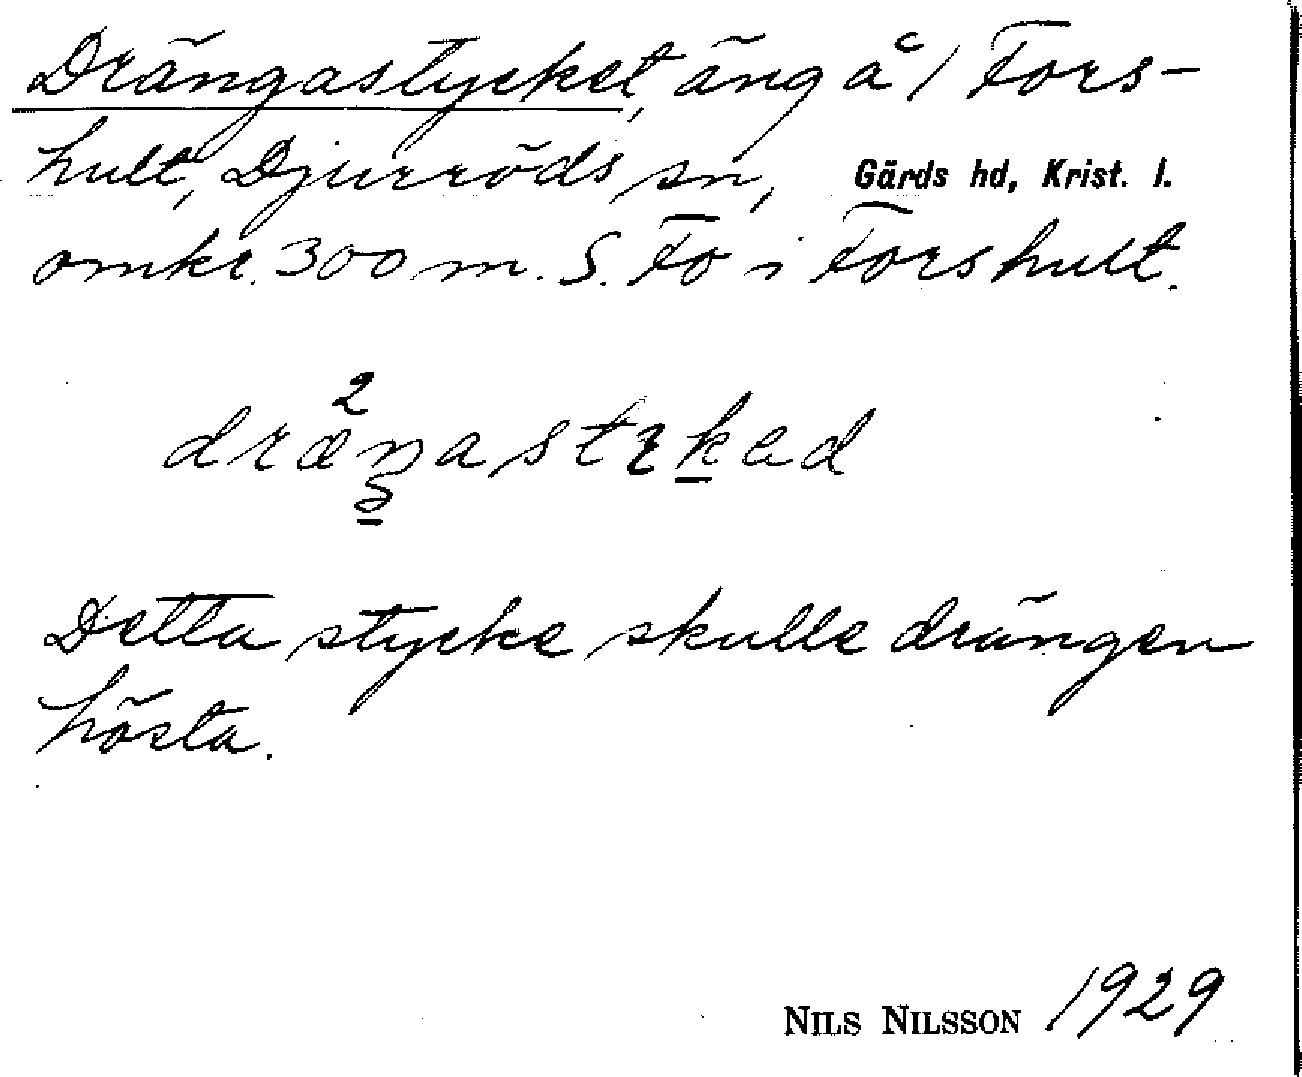 Drängastycket, äng å / Fors-
hult, Djurröds sn, Gärds hd, Krist. l.
omkr. 300 m. S. Fo i Forshult.
Detta stycke skulle drängen
hösta.
NILS NILSSON 1929